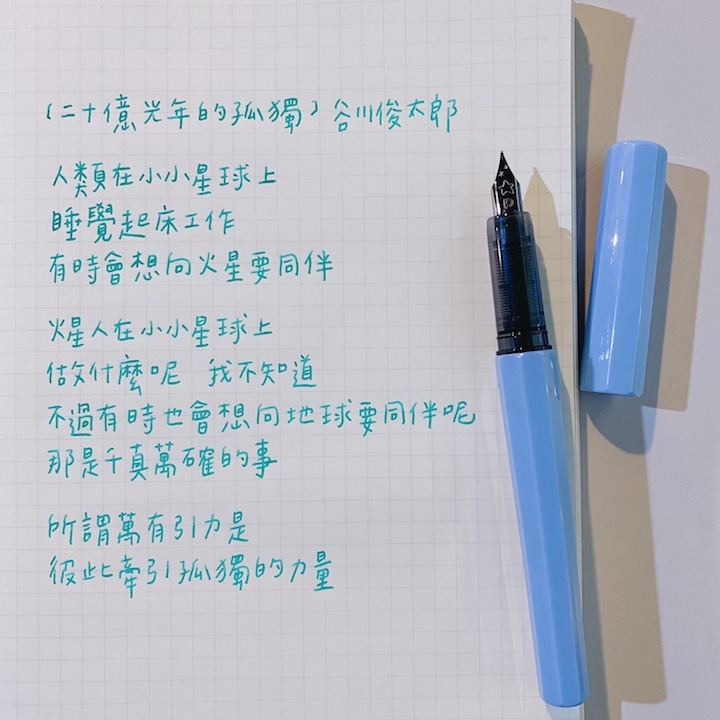 (二十億光年的孤獨) 谷川俊太郎
人類在小小星球上
睡覺起床工作
有時會想向火星要同伴
火星人在小小星球上
做什麼呢 我不知道
不過有時也會想向地球要同伴呢
那是千真萬確的事
所謂萬有引力是
彼此牽引孤獨的力量